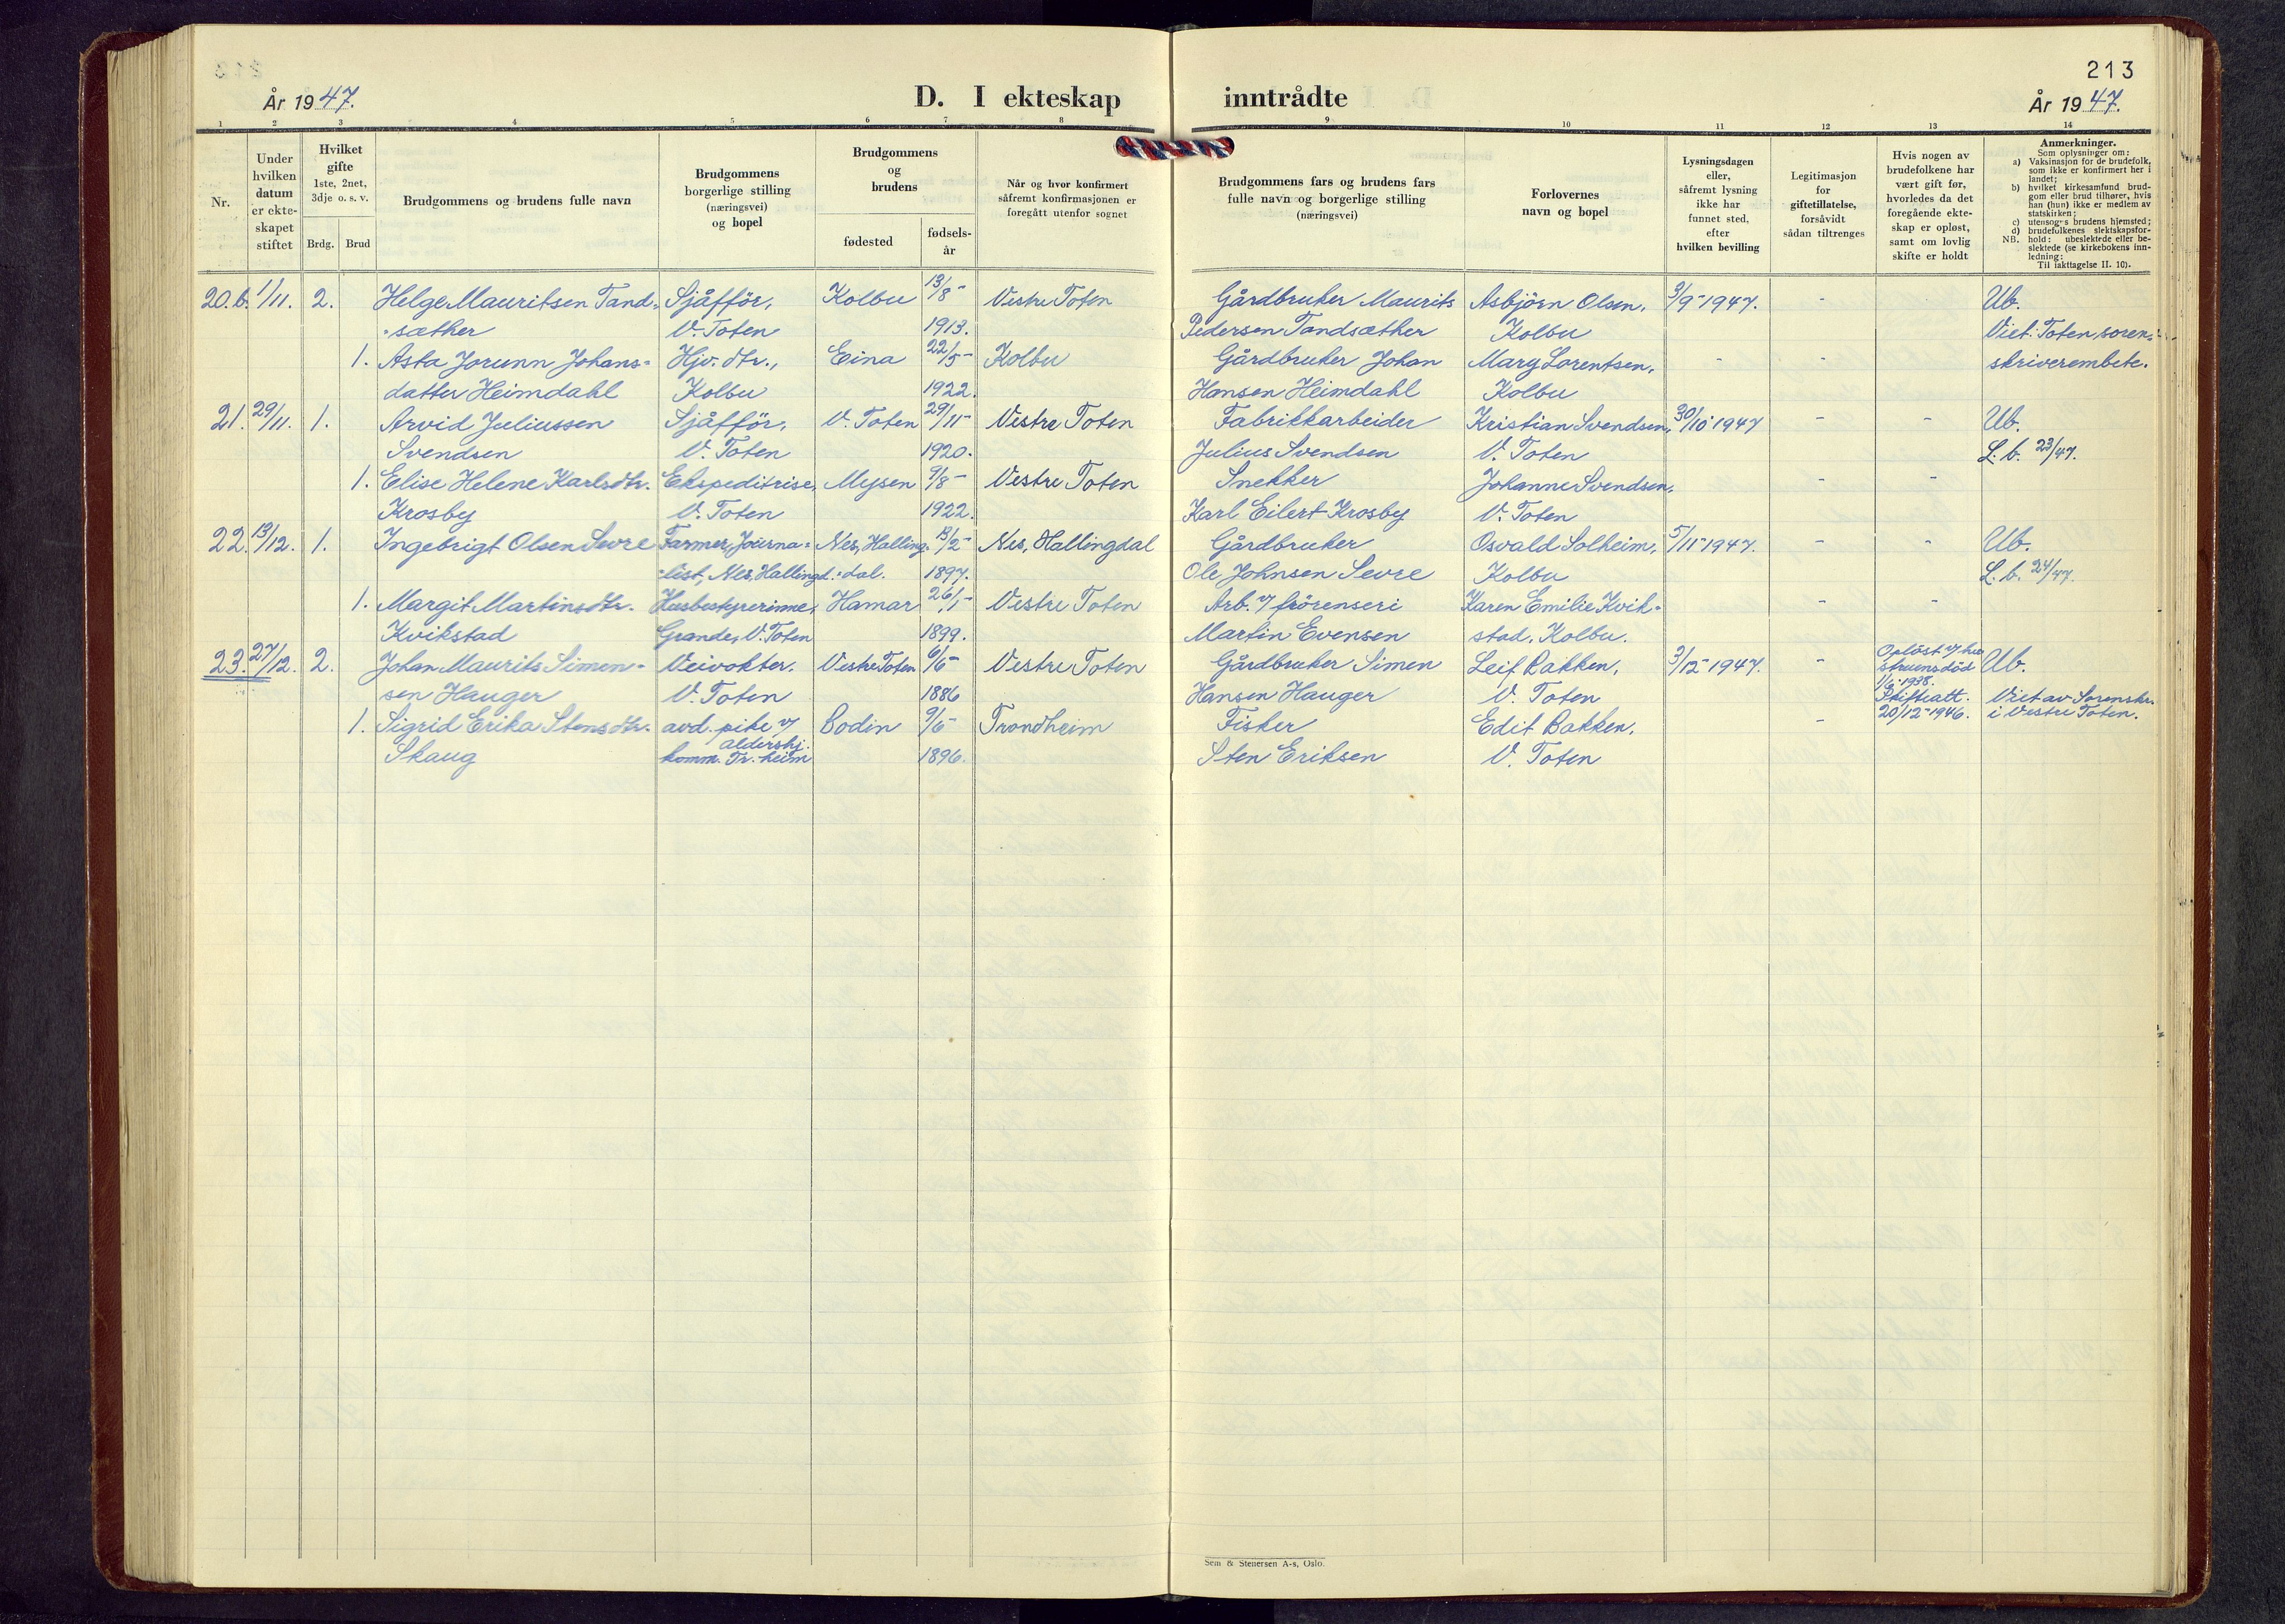 213
År 1947.
D. I ekteskap
inntrådte
År 1947.
1 2 3 4 5 6 7 8 9 10 11 12 13 14
Nr.
Under hvilken datum er ekteskapet stiftet
Hvilket gifte
1ste, 2net, 3dje o. s. v.
Brdg. Brud
Brudgommens og brudens fulle navn
Brudgommens borgerlige stilling (næringsvei) og bopel
Brudgommens og brudens
fødested
fødsels-år
Når og hvor konfirmert såfremt konfirmasjonen er foregått utenfor sognet
Brudgommens fars og brudens fars fulle navn og borgerlige stilling (næringsvei)
Forlovernes navn og bopel
Lysningsdagen eller, såfremt lysning ikke har funnet sted, efter hvilken bevilling
Legitimasjon for giftetillatelse, forsåvidt sådan tiltrenges
Hvis nogen av brudefolkene har vært gift før, hvorledes da det foregående ekte-skap er opløst, samt om lovlig skifte er holdt
Anmerkninger.
Som oplysninger om:
a) Vaksinasjon for de brudefolk, som ikke er konfirmert her i landet;
b) hvilket kirkesamfund brud-gom eller brud tilhører, hvis han (hun) ikke er medlem av statskirken;
c) utensogns brudens hjemsted;
d) brudefolkenes slektskapsfor-
NB. hold: ubeslektede eller be-slektede (se kirkebokens inn-ledning:
Til iakttagelse II. 10).
20.b. 1/11. 2. Helge Mauritsen Tand- Sjåffør, Kolbu 13/8- Vestre Toten Gårdbruker Maurits Asbjörn Olsen, 3/9-1947. - Ub.
-sæther V. Toten 1913. Pedersen Tandsæther Kolbu Viet: Toten soren-
1. Asta Jorunn Johans- Hjv. dtr., Eina 22/5- Kolbu Gårdbruker Johan Mary Lorentsen, - - skriverembete.
datter Heimdahl Kolbu 1922. Hansen Heimdahl Kolbu
21. 29/11. 1. Arvid Juliussen Sjåffør, V. Toten 29/11- Vestre Toten Fabrikkarbeider Kristian Svendsen, 30/10 1947 - - Ub.
Svendsen V. Toten 1920. Julius Svendsen V. Toten L. b. 23/47.
1. Elise Helene Karlsdtr. Ekspeditrise, Mysen 9/8- Vestre Toten Snekker Johanne Svendsen, - -
Krosby V. Toten 1922. Karl Eilert Krosby V. Toten
22. 13/12. 1. Ingebrigt Olsen Sevre Farmer, Journa- Nes, Halling- 13/2- Nes, Hallingdal Gårdbruker Osvald Solheim, 5/11-1947. - - Ub.
-list, Nes, Hallingd. -dal. 1897. Ole Johnsen Sevre Kolbu L. b. 24/47.
1. Margit Martinsdtr. Husbestyrerinne, Hamar 26/1- Vestre Toten Arb. v/ frörenseri Karen Emilie Kvik- - -
Kvikstad Grande, V. Toten 1899. Martin Evensen stad, Kolbu.
23. 27/12. 2. Johan Maurits Simen- Veivokter. Vestre Toten 6/6- Vestre Toten Gårdbruker Simen Leif Bakken, 3/12-1947. - Oplöst v/ hu- Ub.
struens död
1/6-1938.
sen Hauger V. Toten 1886 Hansen Hauger V. Toten Skifteatt. Viet av Sorenskr.
1. Sigrid Erika Stensdtr. avd. pike v/ Bodin 9/6- Trondheim Fisker Edit Bakken, - 20/12-1946. i Vestre Toten.
Skaug aldershj. komm. Tr.heim 1896. Sten Eriksen V. Toten
Sem & Stenersen A-s, Oslo.